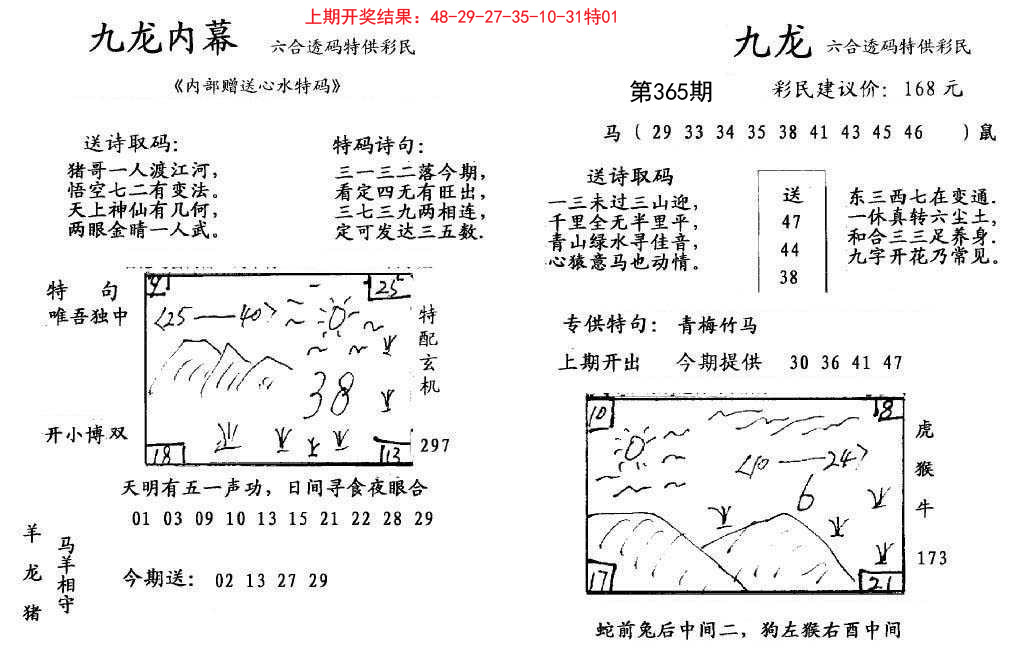 上期开奖结果：48-29-27-35-10-31特01
九龙内幕 六合透码特供彩民
《内部赠送心水特码》
送诗取码：
猪哥一人渡江河，
悟空七二有变法。
天上神仙有几何，
两眼金睛一人武。
特码诗句：
三一三二落今期，
看定四无有旺出，
三七三九两相连，
定可发达三五数.
特 句
唯吾独中
开小博双
25
〈25——40〉
38
18
13
特配玄机
297
天明有五一声功，日间寻食夜眼合
01 03 09 10 13 15 21 22 28 29
羊龙猪
马羊相守
今期送： 02 13 27 29
九龙 六合透码特供彩民
第365期 彩民建议价：168元
马（29 33 34 35 38 41 43 45 46 ）鼠
送诗取码
一三未过三山迎，
千里全无半里平，
青山绿水寻佳音，
心猿意马也动情。
送
47
44
38
东三西七在变通.
一休真转六尘土，
和合三三足养身.
九字开花乃常见。
专供特句： 青梅竹马
上期开出 今期提供 30 36 41 47
10
18
〈10——24〉
6
17
21
虎
猴
牛
173
蛇前兔后中间二，狗左猴右酉中间